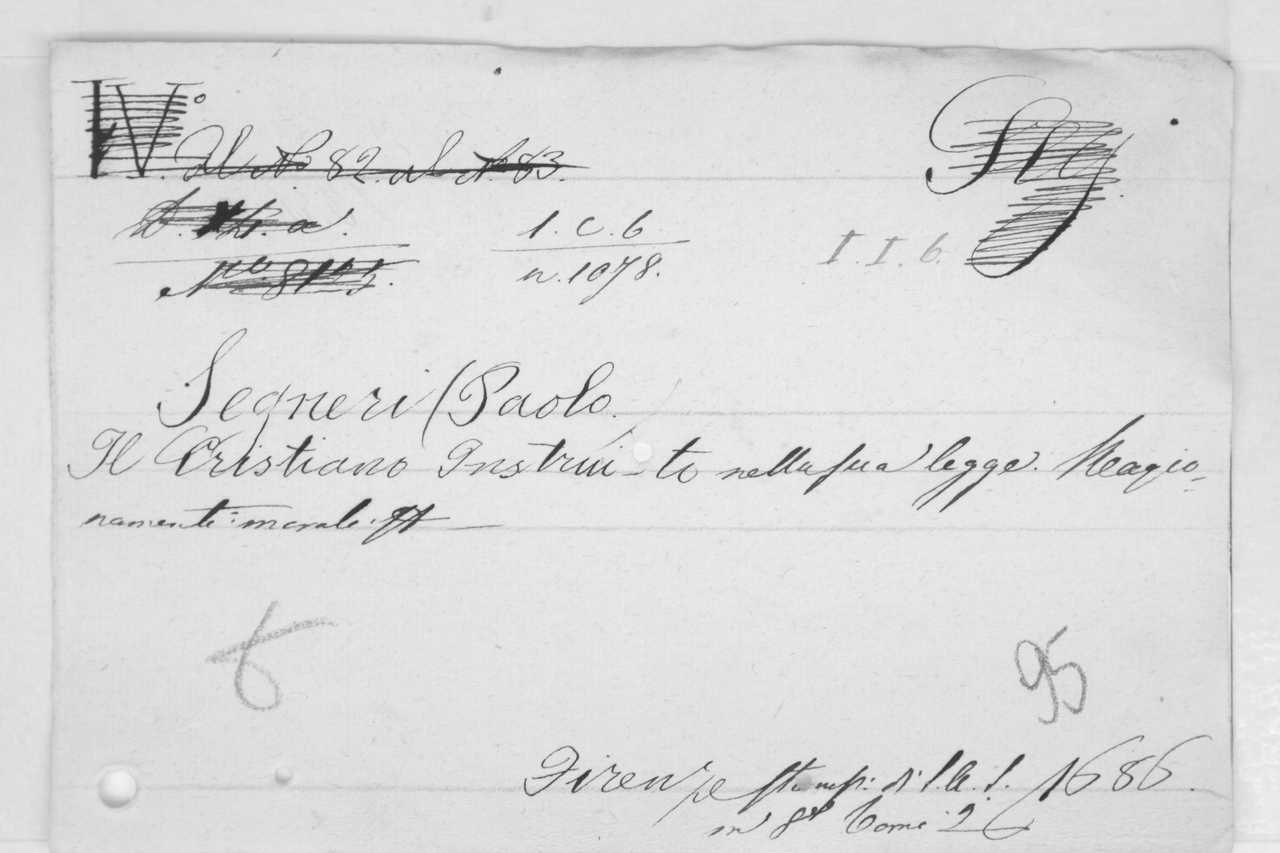 N.º
N.º 82. al N.º 83.
1. C. 6
n. 1078.
I. I. 6.
Segneri (Paolo
Il Cristiano Instrui-to nella sua legge. Ragio-
namenti: morali:
6
95
Firenze Stamp: di S. A. S. 1686.
in 8º Tomi 2